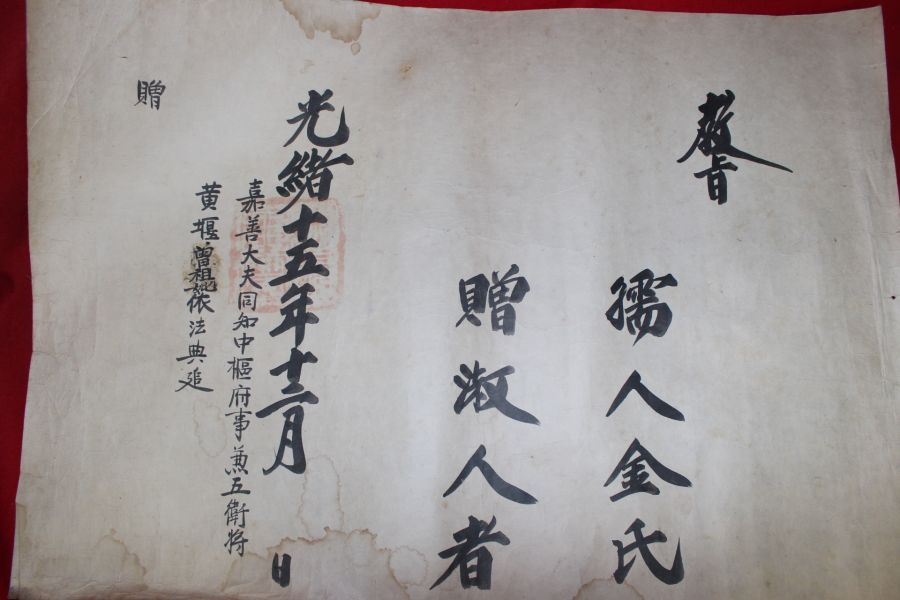 敎旨
孺人金氏
贈淑人者
光緖十五年十二月 日
嘉善大夫同知中樞府事兼五衛將
黄堰曾祖妣依法典追
贈